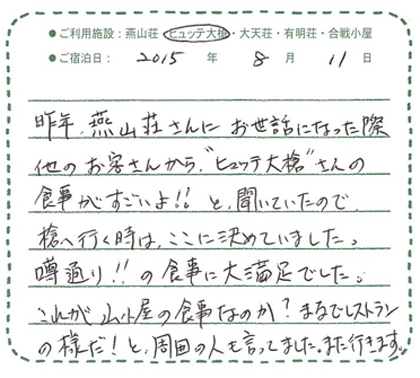 ●ご利用施設：燕山荘・ヒュッテ大槍・大天荘・有明荘・合戦小屋
●ご宿泊日： 2015 年 8 月 11 日
昨年、燕山荘さんにお世話になった際
他のお客さんから、"ヒュッテ大槍"さんの
食事がすごいよ!! と、聞いていたので、
槍へ行く時は、ここに決めていました。
噂通り!! の食事に大満足でした。
これが山小屋の食事なのか？まるでレストラン
の様だ！と、周囲の人も言ってました。また行きます。